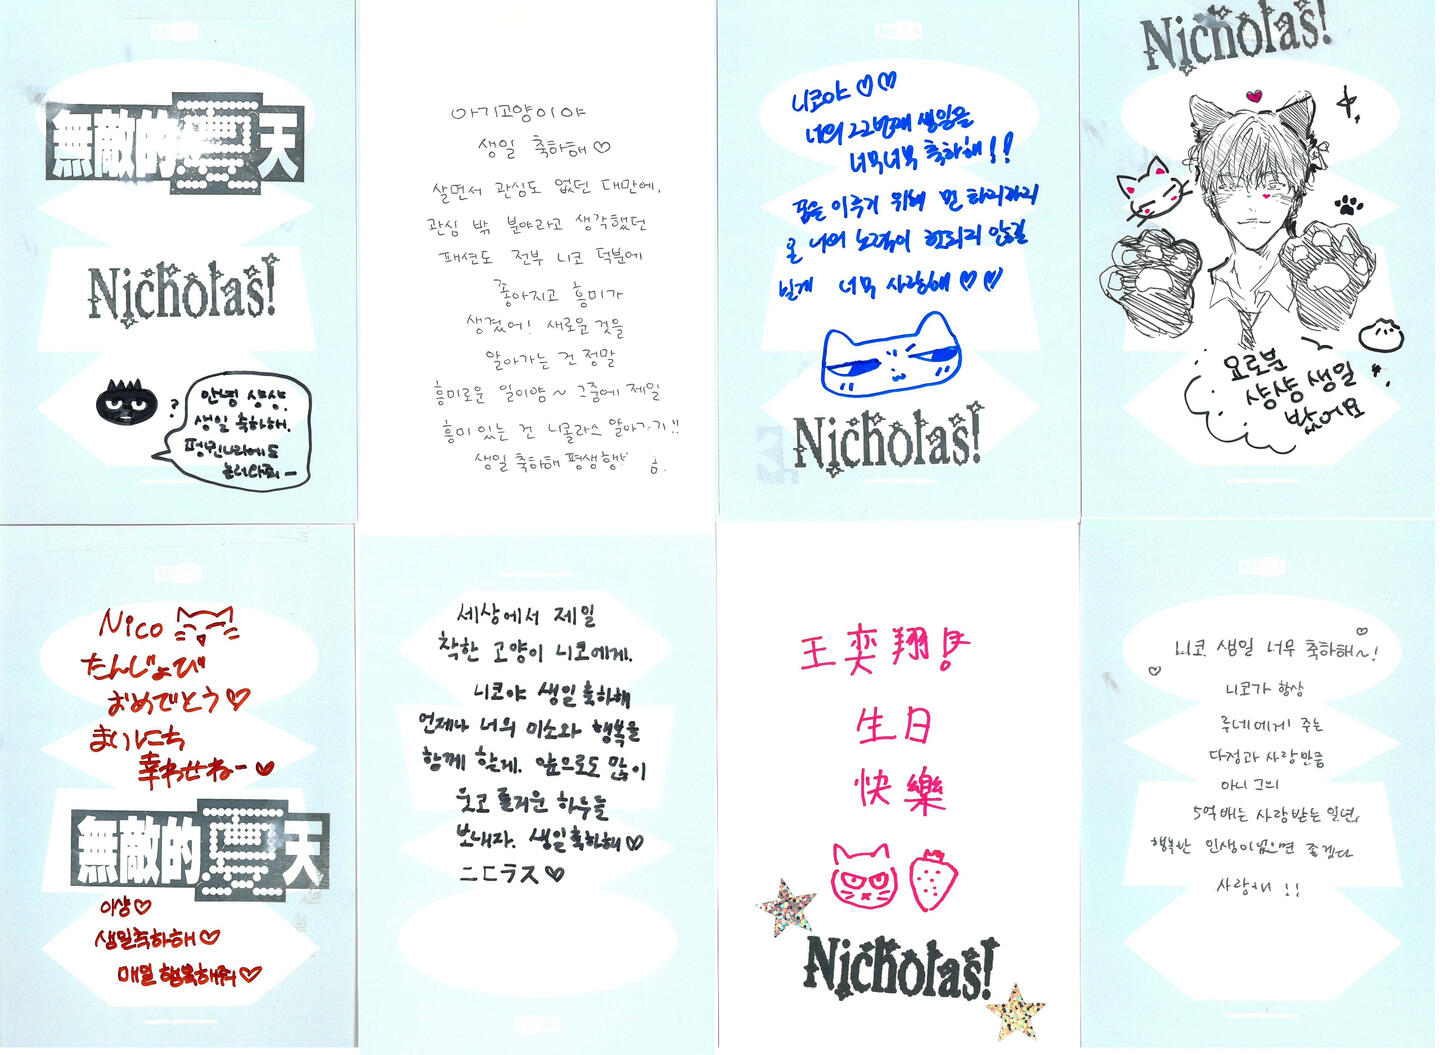 無敵的夏天
Nicholas!
안녕 샹샹.
생일 축하해.
?
놀러와줘ㅡ
아기고양이야
생일 축하해♡
살면서 관심도 없던 대만에,
관심 밖 분야라고 생각했던
패션도 전부 니코 덕분에
좋아지고 흥미가
생겼어! 새로운 것을
알아가는 건 정말
흥미로운 일이얌~ 그중에 제일
흥미 있는 건 니콜라스 알아가기!!
생일 축하해 평생행
니코야♡♡
너의 22번째 생일을
너무너무 축하해!!
꿈을 이루기 위해 먼 타리까지
온 너의 노력이 헛되지 않길
빌게 너무 사랑해♡♡
Nicholas!
Nicholas!
요로분
샹샹 생일
밨어요
Nico
たんじょび
おめでとう♡
まいにち
幸わせねー♡
無敵的夏天
이샹♡
생일축하해♡
매일 행복해줘♡
세상에서 제일
착한 고양이 니코에게.
니코야 생일 축하해
언제나 너의 미소와 행복을
함께 할게. 앞으로도 많이
웃고 즐거운 하루들
보내자. 생일축하해♡
ニコラス♡
王奕翔!
生日
快樂
Nicholas!
니코 생일 너무 축하해~!
니코가 항상
루네에게 주는
다정과 사랑만큼
아니 그의
5억배는 사랑받는 일년,
행복한 인생이었으면 좋겠다
사랑해!!